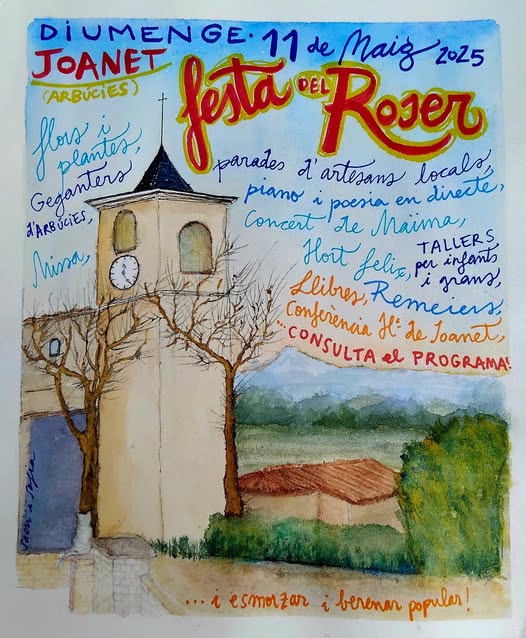 DIUMENGE · 11 de Maig 2025
JOANET
(ARBÚCIES)
festa DEL Roser
flors i
plantes,
Geganters
d'ARBÚCIES,
Missa,
parades d'artesans locals,
piano i poesia en directe,
Concert de Maïma,
Hort feliç,
TALLERS
per infants
i grans,
Llibres, Remeiers,
Conferencia Hª de Joanet,
...CONSULTA el PROGRAMA!
... i esmorzar i berenar popular!